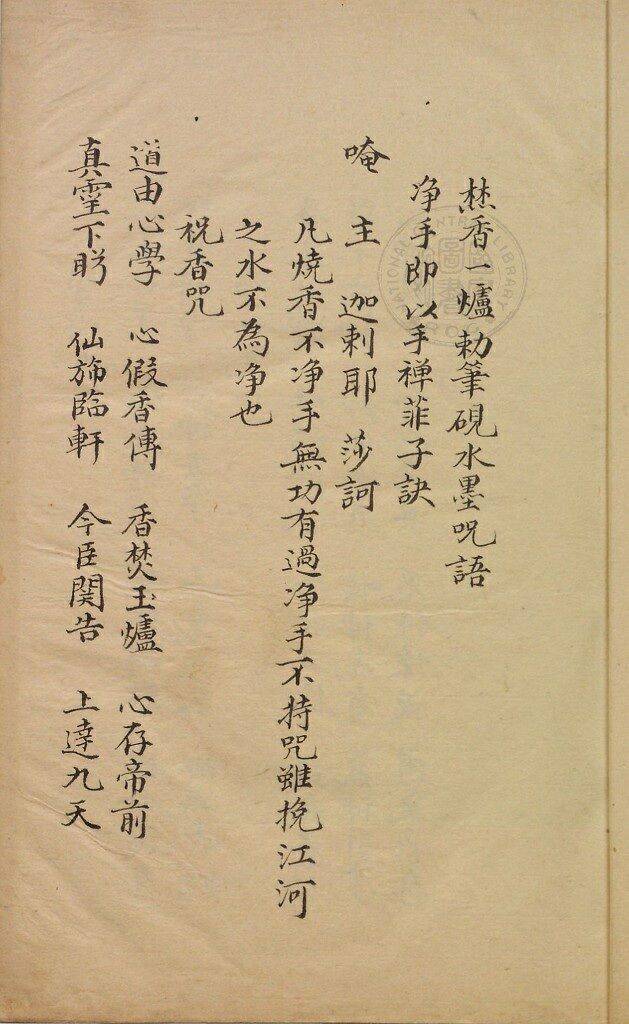 焚香一爐勅筆硯水墨咒語
净手即以手禅菲子訣
唵　主　迦剌耶　莎訶
凡燒香不净手無功有過净手不持咒雖挽江河
之水不為净也
祝香咒
道由心學　心假香傳　香焚玉爐　心存帝前
真靈下盻　仙斾臨軒　今臣関告　上達九天